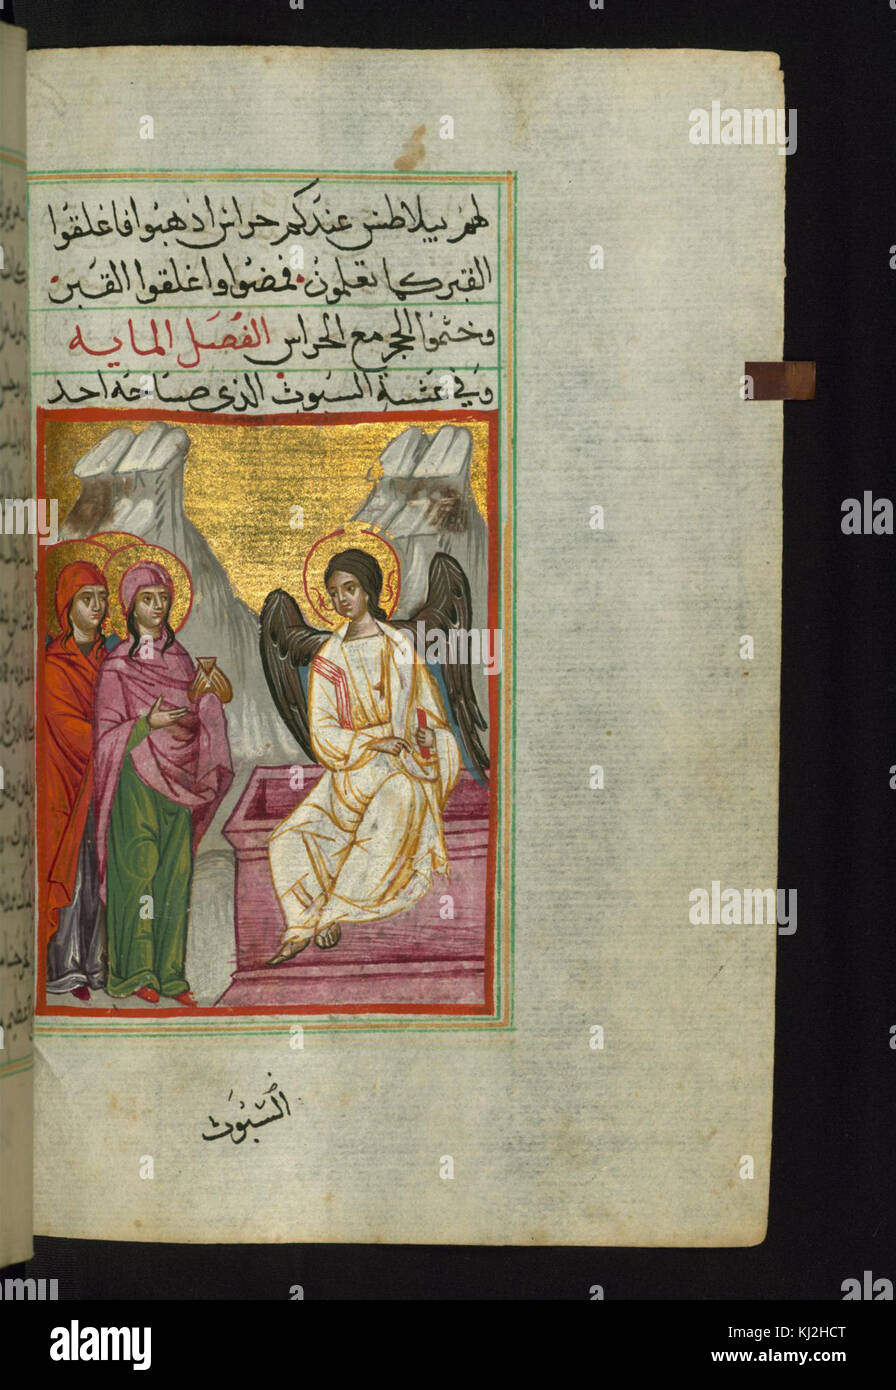 لهم بيلاطس عندكم حراس اذهبوا فاغلقوا
القبر كما تعلمون فمضوا واغلقوا القبر
وختموا الحجر مع الحراس الفصل المايه
وفي عشية السبوت الذي صباحه احد
السبوت
alamy
Image ID: KJ2HCT
www.alamy.com